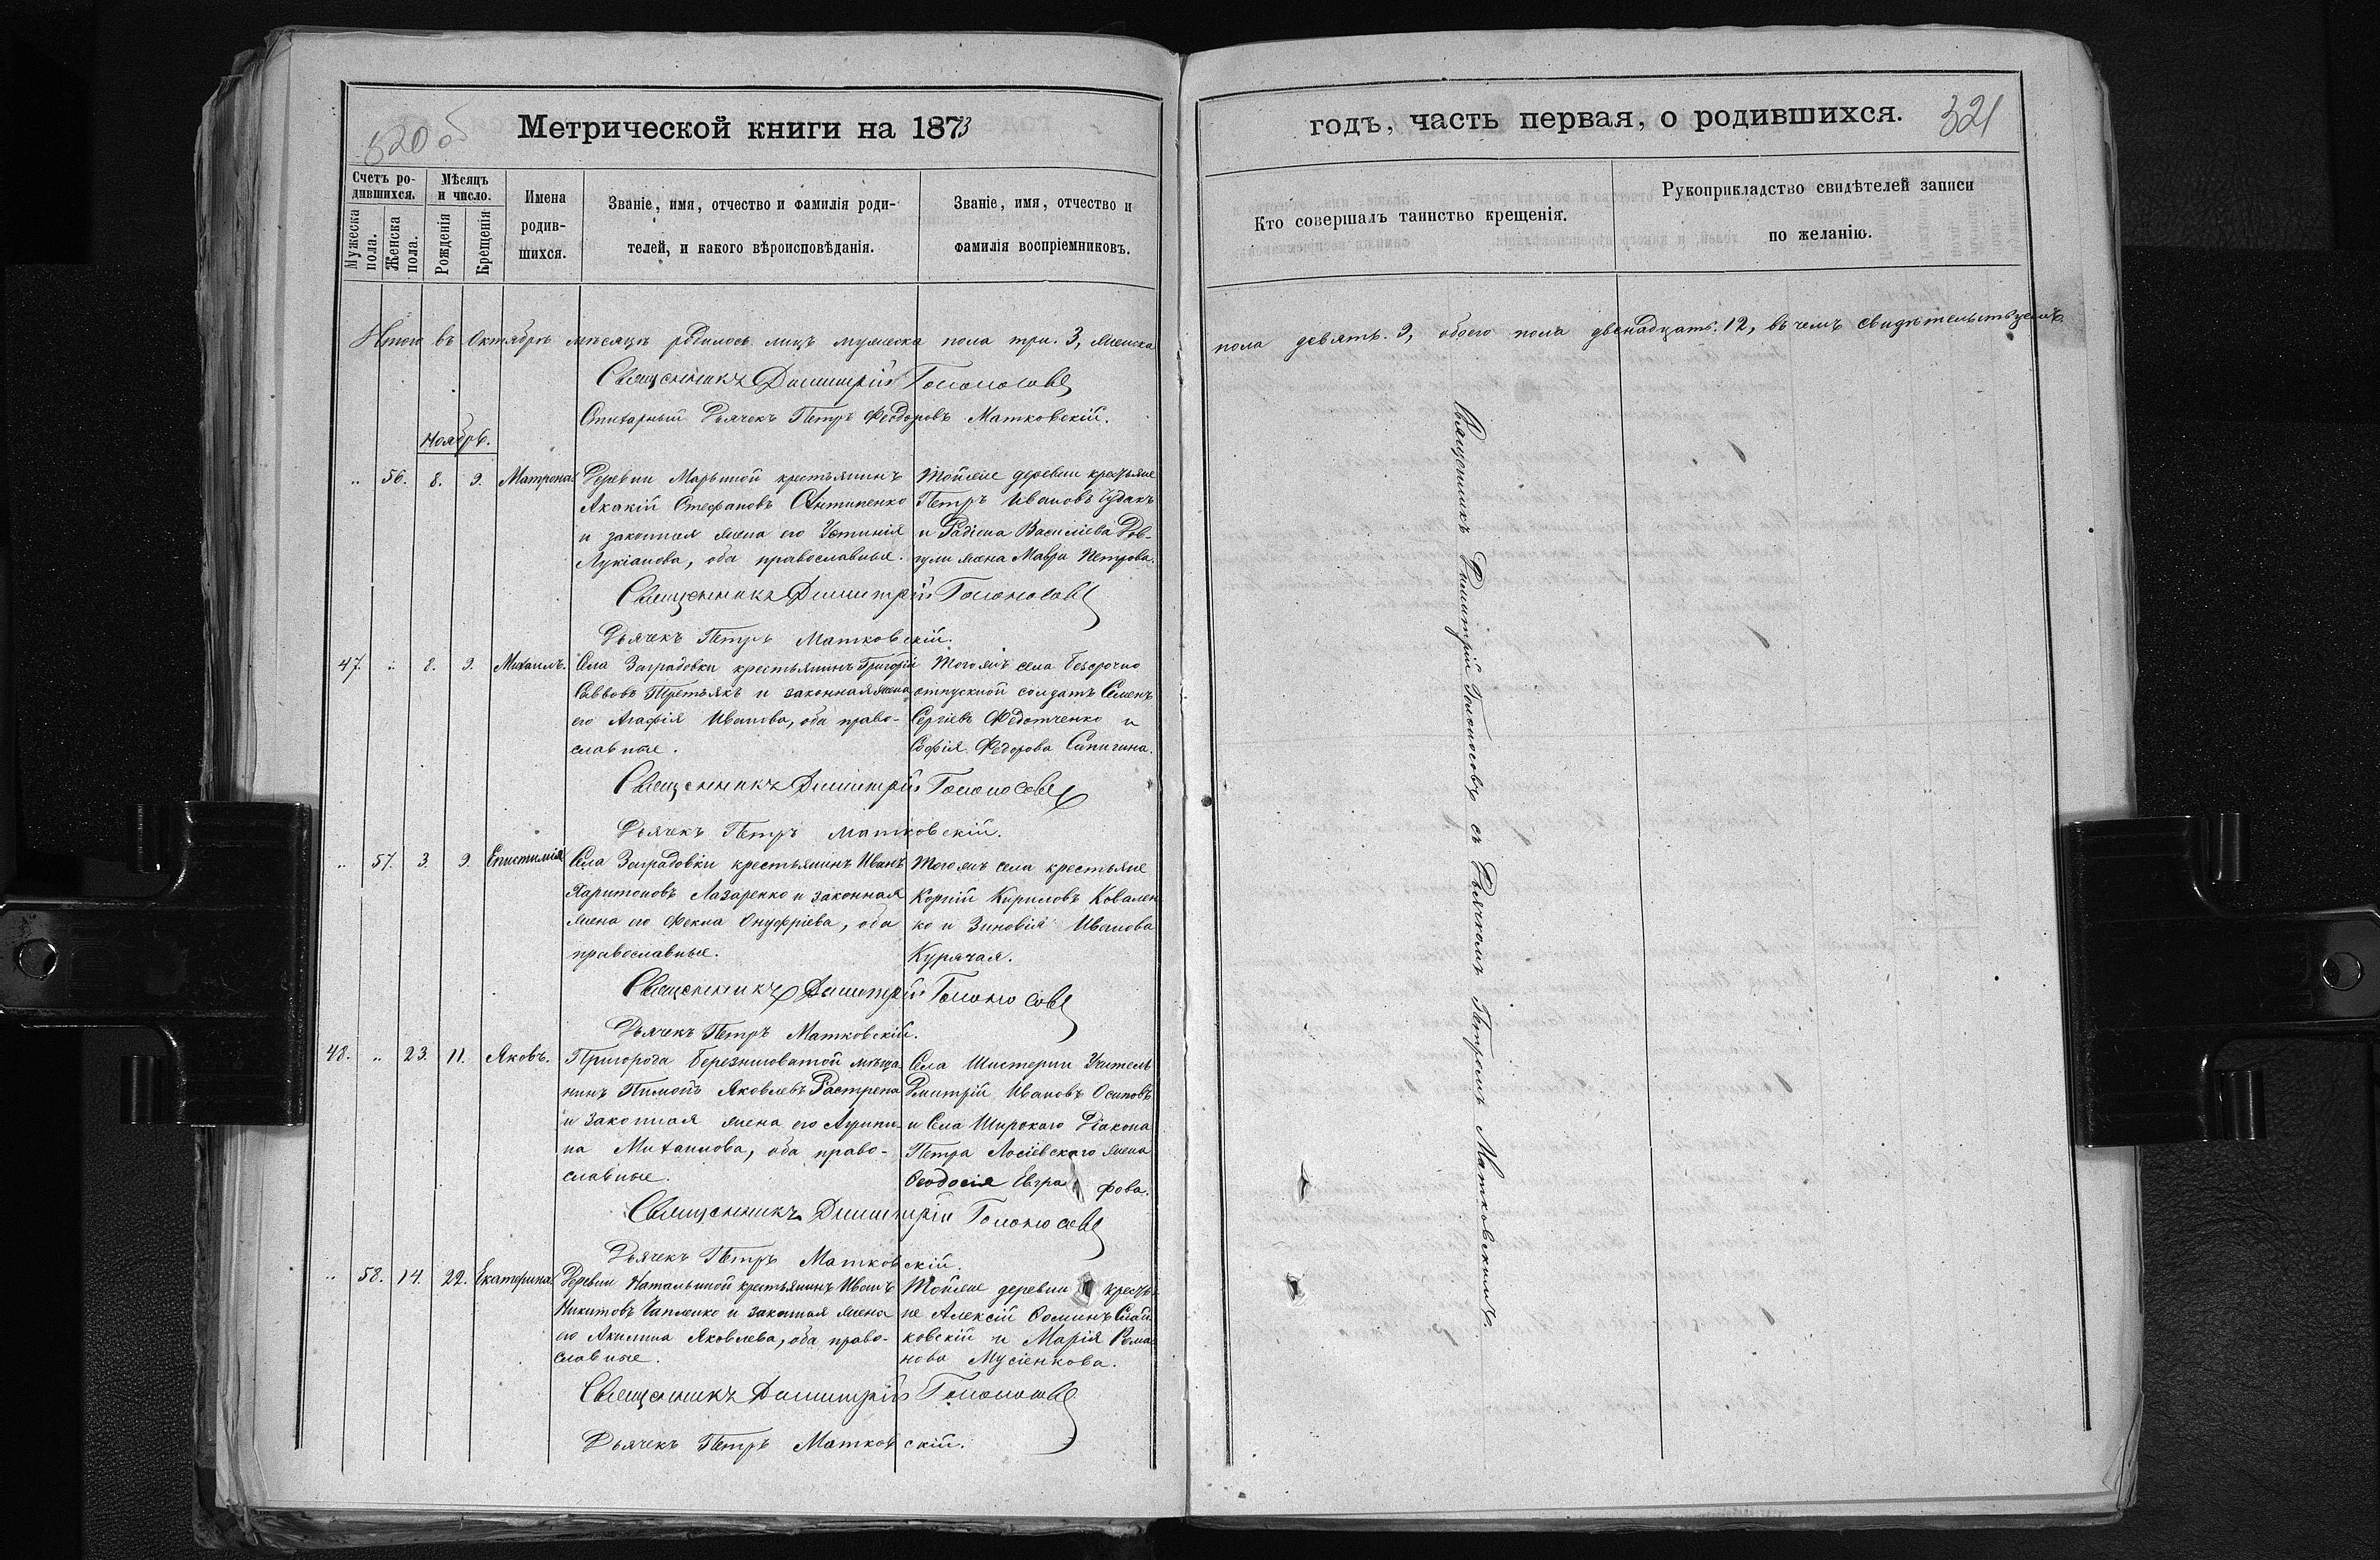 320 об
Метрической книги на 1873
годъ, часть первая, о родившихся.
321
Счетъ ро-
дившихся.
Мужеска
пола.
Женска
пола.
Мѣсяцъ
и число.
Рожденія
Крещенія
Имена
родив-
шихся.
Званіе, имя, отчество и фамилія роди-
телей, и какого вѣроисповѣданія.
Званіе, имя, отчество и
фамилія воспріемниковъ.
Кто совершалъ таинство крещенія.
Рукоприкладство свидѣтелей записи
по желанію.
Итого въ Октябрѣ мѣсяцѣ родилось лицъ мужеска пола три. 3, женска
пола девять. 9, обоего пола двенадцать. 12, въ чемъ свидѣтельствуемъ
Священникъ Димитрій
Дьячекъ Петръ Феодоровъ Матковскій.
Ноябрь.
.. 56. 8. 9. Матрона
Деревни Марьиной крестьянинъ
Акакій Стефановъ Антипенко
и законная жена его Устинія
Лукіанова, оба православные.
Тойже деревни крестьяне
Петръ Ивановъ Чудакъ
и Васильева Дов-
гули жена Мавра Петрова.
Священникъ Димитрій
Дьячекъ Петръ Матковскій.
47. .. 8. 9. Михаилъ.
Села Заградовки крестьянинъ Григорій
Саввовъ Третьякъ и законная жена
его Агафія Иванова, оба право-
славные.
Тогожъ села безсрочно
отпускной солдатъ Семенъ
Сергіевъ Федотченко и
Софія Федорова Сапигина.
Священникъ Димитрій
Дьячекъ Петръ Матковскій.
.. 57. 3. 9. Епистимія
Села Заградовки крестьянинъ Иванъ
Харитоновъ Лазаренко и законная
жена его Фекла Онуфріева, оба
православные.
Тогожъ села крестьяне
Корній Кириловъ Ковален
ко и Зиновія Иванова
Курячая.
Священникъ Димитрій
Дьячекъ Петръ Матковскій.
48. .. 23. 11. Яковъ.
Пригорода Березниговатой мѣща
нинъ Яковлевъ Растрепа
и законная жена его Агрипи-
на Михаилова, оба право-
славные.
Села Шистерни Учитель
Дмитрій Ивановъ Осиповъ
и Села Широкаго Діакона
Петра Лосіевскаго жена
Ѳеодосія Евгра фова.
Священникъ Димитрій
Дьячекъ Петръ Матковскій.
.. 58. 14. 22. Екатерина
Деревни Натальиной крестьянинъ Иванъ
Никитовъ Чапленко и законная жена
его Акилина Яковлева, оба право-
славные.
Тойже деревни крестья
не Алексій Ѳоминъ
ковскій и Марія Рома
нова Мусіенкова.
Священникъ Димитрій
Дьячекъ Петръ Матковскій.
Священникъ Димитрій съ Дьячкомъ Петромъ Матковскимъ.